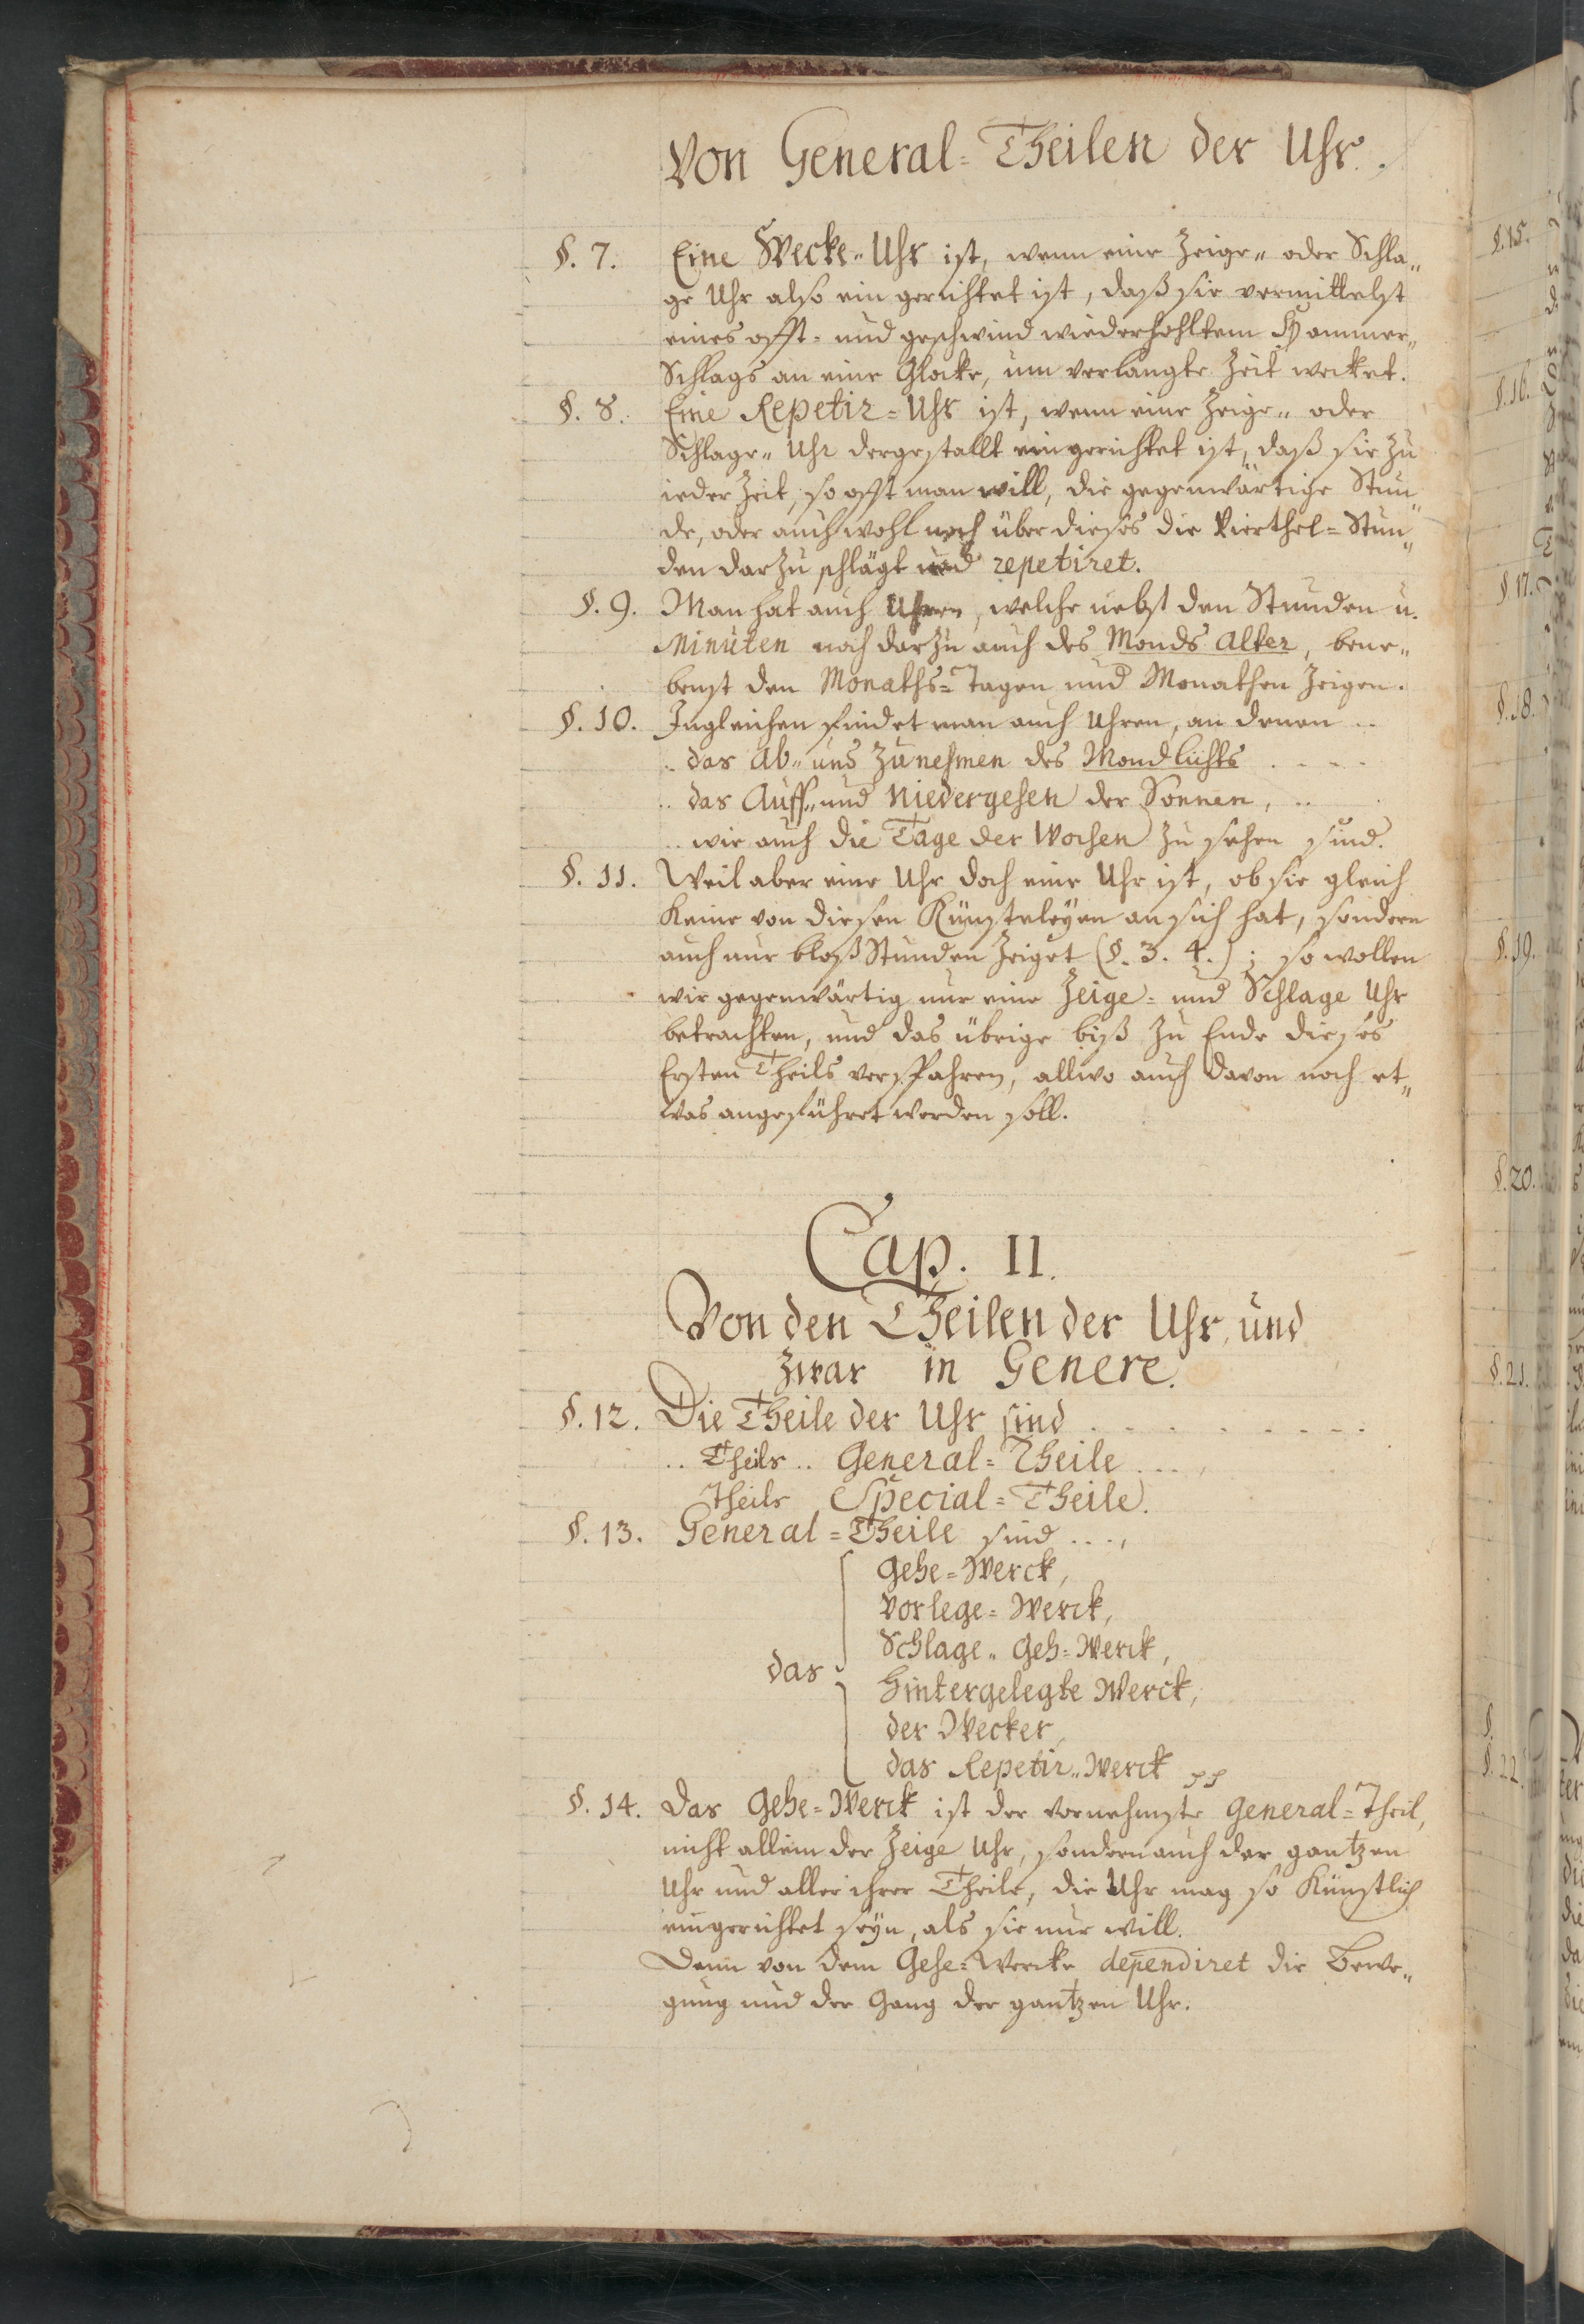 Von General=Theilen der Uhr.
§. 7. Eine Wecke„Uhr ist, wenn eine Zeige„ oder Schla„
ge Uhr also ein gerichtet ist, daß sie vermittelst
eines offt= und geschwind wiederhohltem Hammer„
Schlags an eine Glocke, um verlangte Zeit wecket.
§. 8. Eine Repetir=Uhr ist, wenn eine Zeige„ oder
Schlage„Uhr dergestallt eingerichtet ist, daß sie zu
ieder Zeit, so offt man will, die gegenwärtige Stun„
de, oder auch wohl noch über dieses die Vierthel=Stun„
den darzu schlägt und repetiret.
§. 9. Man hat auch Uhren, welche nebst den Stunden u.
Minuten noch darzu auch des Monds Alter, bene„
benst den Monaths=Tagen und Monathen zeigen.
§. 10. Ingleichen findet man auch Uhren, an denen ..
.. das Ab„ und Zunehmen des Mondlichts . . . .
.. das Auff„ und Niedergehen der Sonnen, ..
.. wie auch die Tage der Wochen zu sehen sind.
§. 11. Weil aber eine Uhr doch eine Uhr ist, ob sie gleich
keine von diesen Künsteleyen an sich hat, sondern
auch nur bloß Stunden zeiget (§. 3. 4.); so wollen
wir gegenwärtig nur eine Zeige= und Schlage Uhr
betrachten, und das übrige biß zu Ende dieses
Ersten Theils versparen, allwo auch davon noch et„
was angeführet werden soll.
Cap. II.
Von den Theilen der Uhr, und
zwar in Genere.
§. 12. Die Theile der Uhr sind . . . . . . .
.. Theils .. General=Theile . . .,
Theils Special=Theile.
§. 13. General=Theile sind . . .,
Gehe=Werck,
Vorlege=Werck,
Schlage„Geh=Werck,
das Hintergelegte Werck,
der Wecker,
das Repetir„Werck pp
§. 14. Das Gehe=Werck ist der vornehmste General=Theil,
nicht allein der Zeige Uhr, sondern auch der gantzen
Uhr und aller ihrer Theile, die Uhr mag so künstlich
eingerichtet seyn, als sie nur will.
Denn von dem Gehe=Wercke dependiret die Bewe„
gung und der Gang der gantzen Uhr.
§. 15.
§. 16.
§ 17.
§. 18.
§. 19.
§. 20.
§. 21.
§.
§. 22.